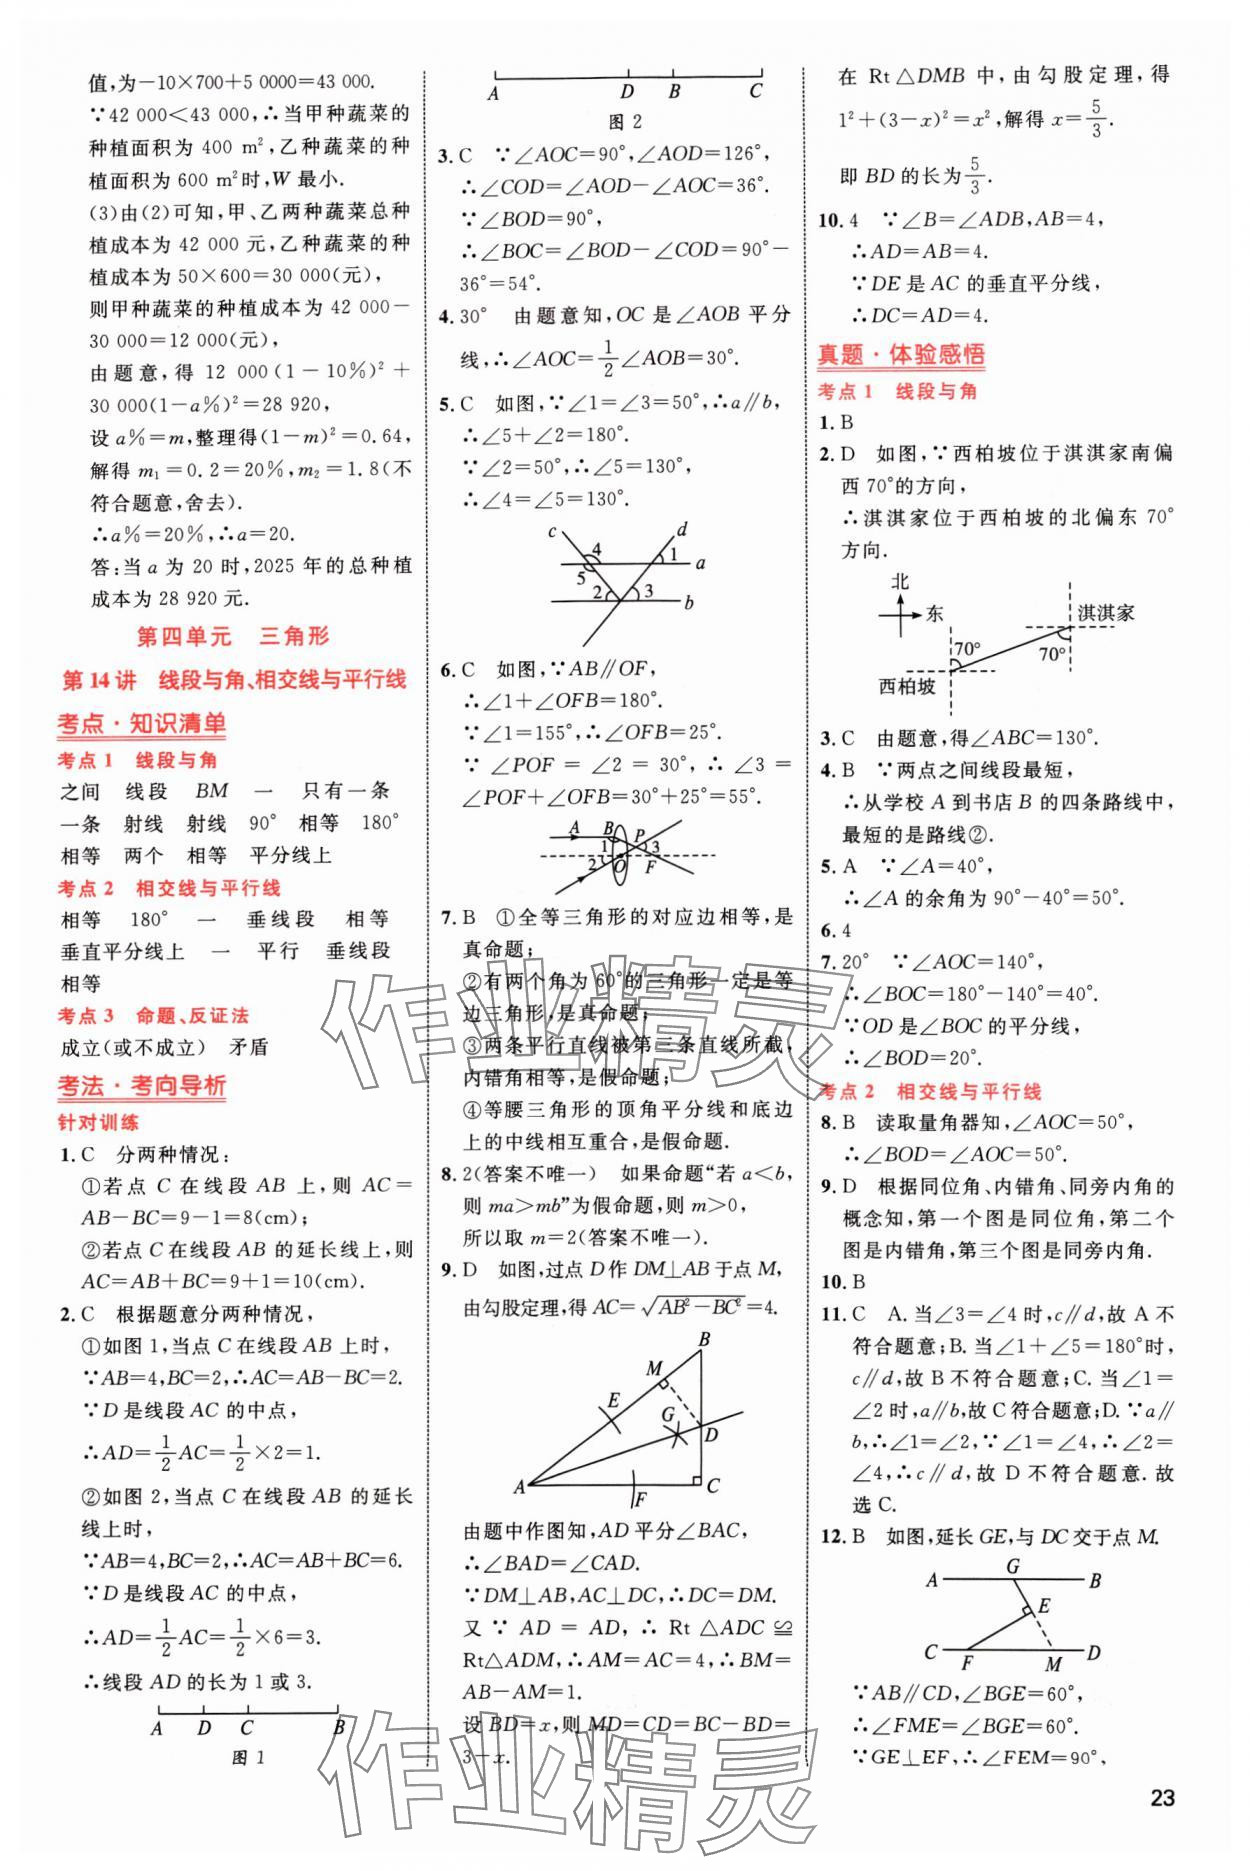 值,为-10×700+5 0000=43 000.
∵42 000<43 000,∴当甲种蔬菜的
种植面积为 400 m²,乙种蔬菜的种
植面积为 600 m²时,W 最小.
(3)由(2)可知,甲、乙两种蔬菜总种
植成本为 42 000 元,乙种蔬菜的种
植成本为 50×600=30 000(元),
则甲种蔬菜的种植成本为 42 000-
30 000=12 000(元),
由题意,得 12 000(1-10%)²+
30 000(1-a%)²=28 920,
设 a%=m,整理得(1-m)²=0.64,
解得 m₁=0.2=20%,m₂=1.8(不
符合题意,舍去).
∴a%=20%,∴a=20.
答:当 a 为 20 时,2025 年的总种植
成本为 28 920 元.
第四单元 三角形
第 14 讲 线段与角、相交线与平行线
考点·知识清单
考点 1 线段与角
之间 线段 BM 一 只有一条
一条 射线 射线 90° 相等 180°
相等 两个 相等 平分线上
考点 2 相交线与平行线
相等 180° 一 垂线段 相等
垂直平分线上 一 平行 垂线段
相等
考点 3 命题、反证法
成立(或不成立) 矛盾
考法·考向导析
针对训练
1. C 分两种情况:
①若点 C 在线段 AB 上,则 AC=
AB-BC=9-1=8(cm);
②若点 C 在线段 AB 的延长线上,则
AC=AB+BC=9+1=10(cm).
2. C 根据题意分两种情况,
①如图 1,当点 C 在线段 AB 上时,
∵AB=4,BC=2,∴AC=AB-BC=2.
∵D 是线段 AC 的中点,
∴AD=1/2AC=1/2×2=1.
②如图 2,当点 C 在线段 AB 的延长
线上时,
∵AB=4,BC=2,∴AC=AB+BC=6.
∵D 是线段 AC 的中点,
∴AD=1/2AC=1/2×6=3.
∴线段 AD 的长为 1 或 3.
A D C B
图 1
A D B C
图 2
3. C ∵∠AOC=90°,∠AOD=126°,
∴∠COD=∠AOD-∠AOC=36°.
∵∠BOD=90°,
∴∠BOC=∠BOD-∠COD=90°-
36°=54°.
4. 30° 由题意知,OC 是∠AOB 平分
线,∴∠AOC=1/2∠AOB=30°.
5. C 如图,∵∠1=∠3=50°,∴a∥b,
∴∠5+∠2=180°.
∵∠2=50°,∴∠5=130°,
∴∠4=∠5=130°.
c d
4 1 a
5
2 3 b
6. C 如图,∵AB∥OF,
∴∠1+∠OFB=180°.
∵∠1=155°,∴∠OFB=25°.
∵ ∠POF = ∠2 = 30°, ∴ ∠3 =
∠POF+∠OFB=30°+25°=55°.
A B P
1 3
2 O F
7. B ①全等三角形的对应边相等,是
真命题;
②有两个角为 60°的三角形一定是等
边三角形,是真命题;
③两条平行直线被第三条直线所截,
内错角相等,是假命题;
④等腰三角形的顶角平分线和底边
上的中线相互重合,是假命题.
8. 2(答案不唯一) 如果命题“若 a<b,
则 ma>mb”为假命题,则 m>0,
所以取 m=2(答案不唯一).
9. D 如图,过点 D 作 DM⊥AB 于点 M,
由勾股定理,得 AC=√(AB²-BC²)=4.
B
M
E
G
D
A F C
由题中作图知,AD 平分∠BAC,
∴∠BAD=∠CAD.
∵DM⊥AB,AC⊥DC,∴DC=DM.
又 ∵ AD = AD, ∴ Rt △ADC ≌
Rt△ADM,∴AM=AC=4,∴BM=
AB-AM=1.
设 BD=x,则 MD=CD=BC-BD=
3-x.
在 Rt △DMB 中,由勾股定理,得
1²+(3-x)²=x²,解得 x=5/3.
即 BD 的长为5/3.
10. 4 ∵∠B=∠ADB,AB=4,
∴AD=AB=4.
∵DE 是 AC 的垂直平分线,
∴DC=AD=4.
真题·体验感悟
考点 1 线段与角
1. B
2. D 如图,∵西柏坡位于淇淇家南偏
西 70°的方向,
∴淇淇家位于西柏坡的北偏东 70°
方向.
北
东 淇淇家
70° 70°
西柏坡
3. C 由题意,得∠ABC=130°.
4. B ∵两点之间线段最短,
∴从学校 A 到书店 B 的四条路线中,
最短的是路线②.
5. A ∵∠A=40°,
∴∠A 的余角为 90°-40°=50°.
6. 4
7. 20° ∵∠AOC=140°,
∴∠BOC=180°-140°=40°.
∵OD 是∠BOC 的平分线,
∴∠BOD=20°.
考点 2 相交线与平行线
8. B 读取量角器知,∠AOC=50°,
∴∠BOD=∠AOC=50°.
9. D 根据同位角、内错角、同旁内角的
概念知,第一个图是同位角,第二个
图是内错角,第三个图是同旁内角.
10. B
11. C A. 当∠3=∠4 时,c∥d,故 A 不
符合题意;B. 当∠1+∠5=180°时,
c∥d,故 B 不符合题意;C. 当∠1=
∠2 时,a∥b,故 C 符合题意;D. ∵a∥
b,∴∠1=∠2,∵∠1=∠4,∴∠2=
∠4,∴c∥d,故 D 不符合题意. 故
选 C.
12. B 如图,延长 GE,与 DC 交于点 M.
G
A B
E
C F M D
∵AB∥CD,∠BGE=60°,
∴∠FME=∠BGE=60°.
∵GE⊥EF,∴∠FEM=90°,
23
作业精灵
作业精灵